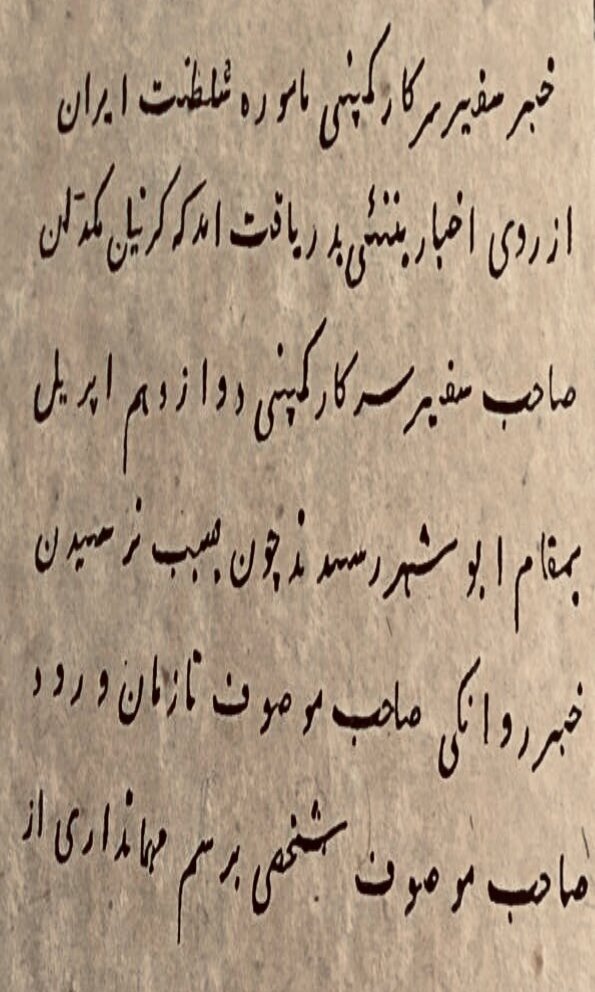 خبر سفیر سرکار کمپنی ماموره سلطنت ایران
از روی اخبار بنبئی بدریافت امد که کرنیل مکدالن
صاحب سفیر سرکار کمپنی دوازدهم اپریل
بمقام ابو شهر رسیدند چون بسبب نرسیدن
خبر روانکی صاحب موصوف تا زمان ورود
صاحب موصوف شخصی برسم مهمانداری از